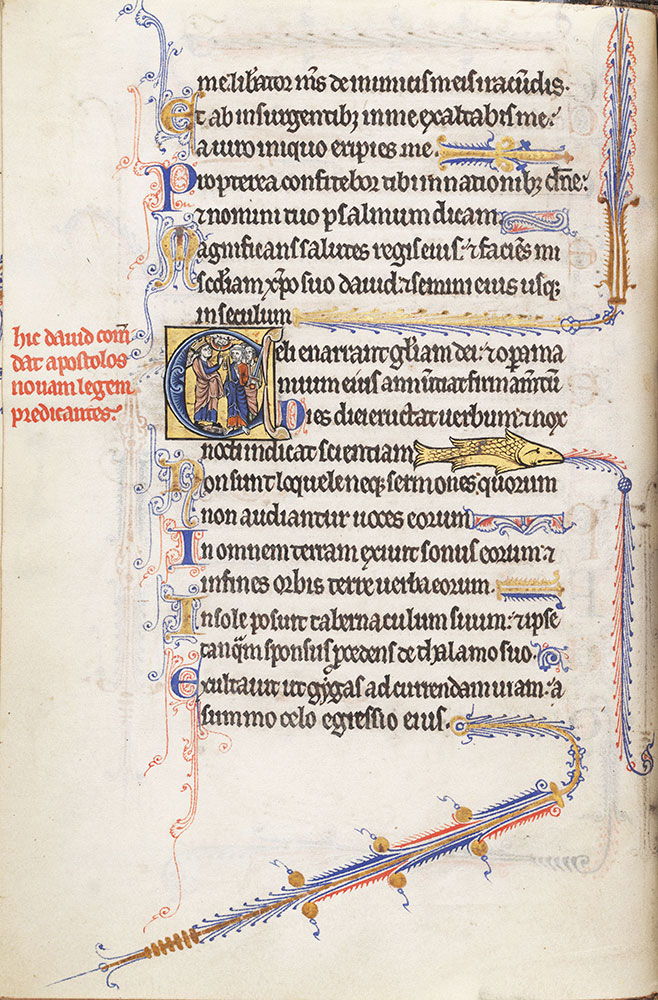 me. liberator m̃s de inimicis meis iracundis.
Et ab insurgentibꝫ in me exaltabis me:
a uiro iniquo eripies me.
Propterea confitebor tibi in nationibꝫ dñe:
⁊ nomini tuo psalmum dicam
Magnificans salutes regis eius: ⁊ faciẽs mi
sc̃diam xp̃o suo dauid ⁊ semini eius usqꝫ
in seculum
hic dauid com̃
dat apostolos
nouam legem
predicantes:
Celi enarrant gl̃iam dei: ⁊ opera ma
nuum eius annũtiat firmam̃tũ
Dies diei eructat uerbum: ⁊ nox
nocti indicat scientiam
Non sunt loquele neqꝫ sermones: quorum
non audiantur uoces eorum
In omnem terram exiuit sonus eorum: ⁊
in fines orbis terre uerba eorum.
In sole posuit tabernaculum suum: ⁊ ipse
tanq̃m sponsus p̃cedens de thalamo suo.
Exultauit ut gygas ad currendam uiam: a
summo celo egressio eius.